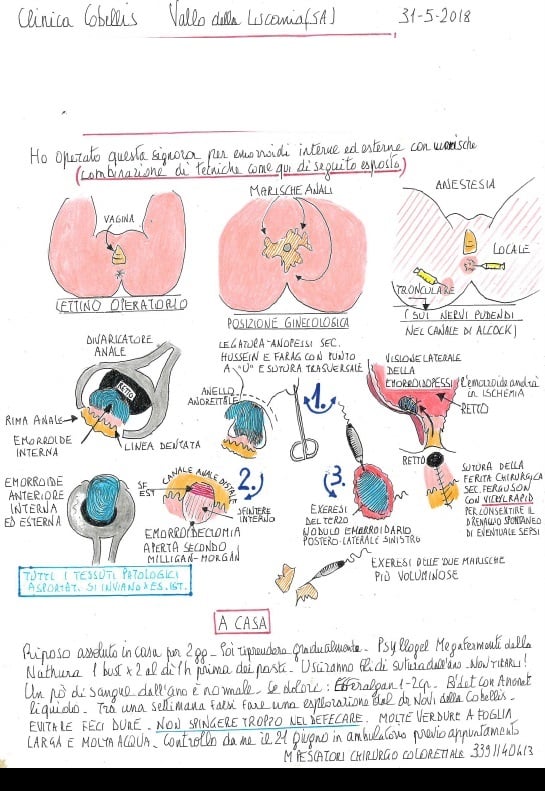 Clinica Cobellis Vallo della Lucania (SA) 31-5-2018
Ho operato questa signora per emorroidi interne ed esterne con marische
(combinazione di tecniche come qui di seguito esposto)
VAGINA
LETTINO OPERATORIO
MARISCHE ANALI
POSIZIONE GINECOLOGICA
ANESTESIA
LOCALE
TRONCULARE
(SUI NERVI PUDENDI
NEL CANALE DI ALCOCK)
DIVARICATORE
ANALE
RETTO
RIMA ANALE
EMORROIDE
INTERNA
LINEA DENTATA
LEGATURA-ANOPESSI SEC.
HUSSEIN E FARAG CON PUNTO
A "U" E SUTURA TRASVERSALE
ANELLO
ANORETTALE
1.
VISIONE LATERALE
DELLA
EMORROIDOPESSI
l'emorroide andrà
in ISCHEMIA
RETTO
EMORROIDE
ANTERIORE
INTERNA
ED ESTERNA
SF
EST
CANALE ANALE DISTALE
SFINTERE
INTERNO
EMORROIDECTOMIA
APERTA SECONDO
MILLIGAN-MORGAN
2.
3.
EXERESI
DEL TERZO
NODULO EMORROIDARIO
POSTERO-LATERALE SINISTRO
RETTO
SUTURA DELLA
FERITA CHIRURGICA
SEC. FERGUSON
CON VICRYL RAPID
PER CONSENTIRE IL
DRENAGGIO SPONTANEO
DI EVENTUALE SEPSI
EXERESI DELLE DUE MARISCHE
PIÙ VOLUMINOSE
TUTTI I TESSUTI PATOLOGICI
ASPORTATI SI INVIANO X ES. IST.
A CASA
Riposo assoluto in casa per 2 gg - Poi riprendere gradualmente - Psyllogel Megafermenti della
Nathura 1 bust x 2 al dì 1h prima dei pasti - Usciranno fili di sutura dall'ano - NON TIRARLI!
Un pò di sangue dall'ano è normale - Se dolore: Efferalgan 1-2 cp. Bidet con
liquido - Tra una settimana farsi fare una esplorazione dal dr Novi della Cobellis -
EVITARE FECI DURE - NON SPINGERE TROPPO NEL DEFECARE. MOLTE VERDURE A FOGLIA
LARGA E MOLTA ACQUA - Controllo da me il 21 giugno in ambulatorio previo appuntamento
M PESCATORI CHIRURGO COLORETTALE 3391140413